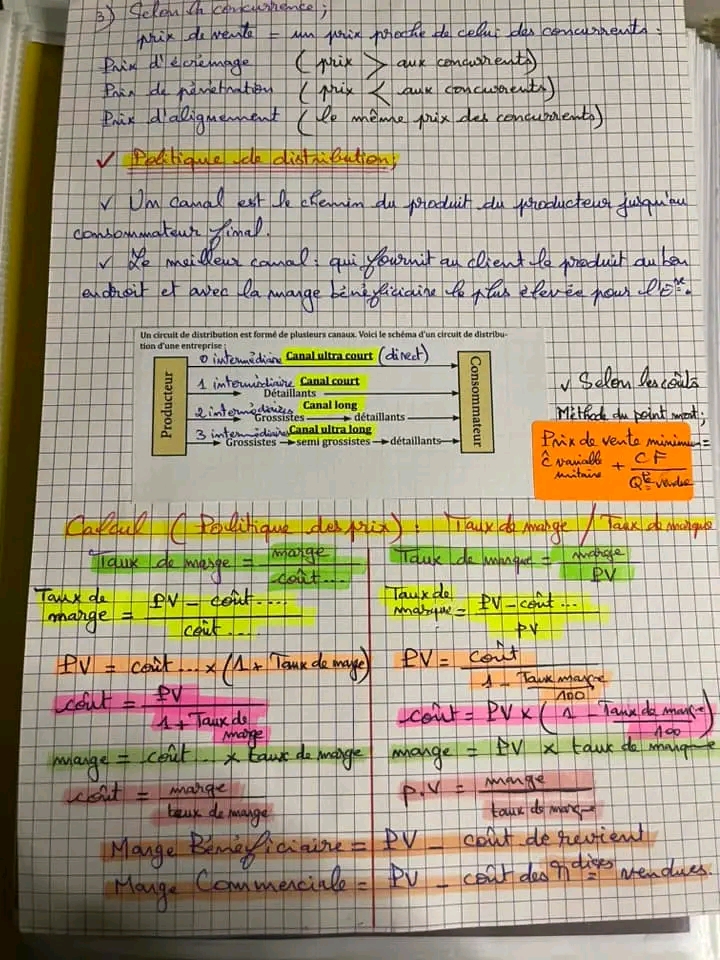 3) Selon la concurrence;
prix de vente = un prix proche de celui des concurrents.
Prix d'écrémage ( prix > aux concurrents)
Prix de pénétration ( prix < aux concurrents)
Prix d'alignement ( le même prix des concurrents)
✓ Politique de distribution;
✓ Un canal est le chemin du produit du producteur jusqu'au
consommateur final.
✓ Le meilleur canal : qui fournit au client le produit au bon
endroit et avec la marge bénéficiaire la plus élevée pour l'Ese.
Un circuit de distribution est formé de plusieurs canaux. Voici le schéma d'un circuit de distribu-
tion d'une entreprise :
Producteur
0 intermédiaire Canal ultra court (direct)
1 intermédiaire Canal court
Détaillants
2 intermédiaires Canal long
Grossistes → détaillants
3 intermédiaires Canal ultra long
Grossistes → semi grossistes → détaillants
Consommateur
✓ Selon les coûts
Méthode du point mort;
Prix de vente minimum =
c̑ variable unitaire + CF / Qté vendue
Calcul ( Politique des prix) : Taux de marge / Taux de marque
Taux de marge = marge / coût ...
Taux de marque = marge / PV
Taux de marge = PV - coût .... / coût ...
Taux de marque = PV - coût ... / PV
PV = coût ... x (1 + Taux de marge)
PV = coût / 1 - Taux marque / 100
coût = PV / 1 + Taux de marge
coût = PV x ( 1 - Taux de marque / 100 )
marge = coût ... x taux de marge
marge = PV x taux de marque
coût = marge / taux de marge
P.V = marge / taux de marque
Marge Bénéficiaire = PV - coût de revient
Marge Commerciale = PV - coût des mdises vendues.